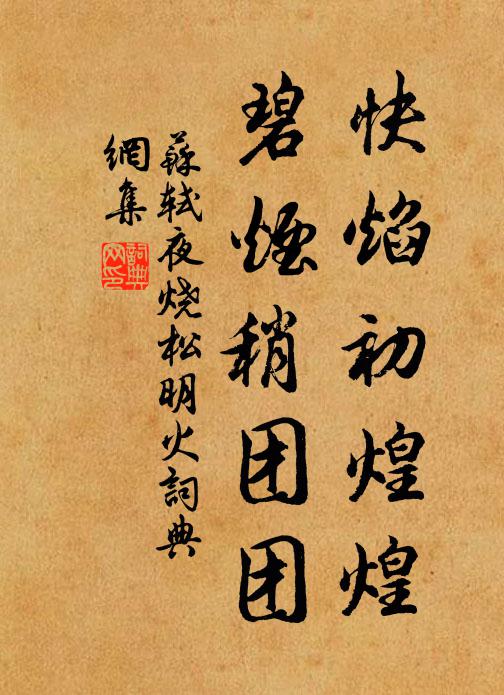 快焰初煌煌
碧煙稍团团
蘇轼夜烧松明火詞典
網集
詞典
网印